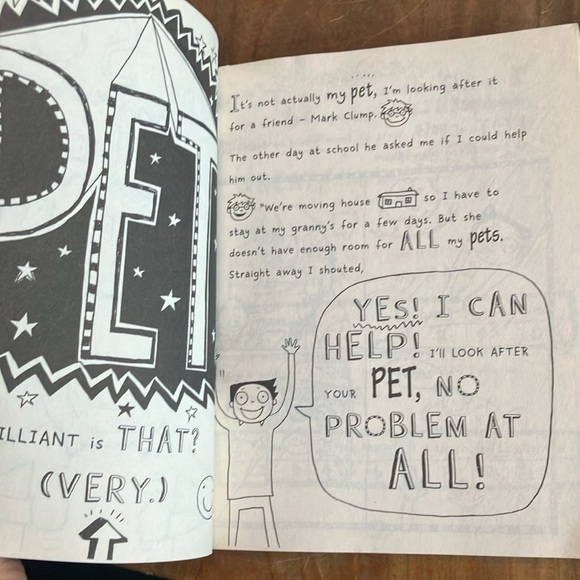 PET
ILLIANT is THAT?
(VERY.)
It's not actually my pet, I'm looking after it
for a friend – Mark Clump.
The other day at school he asked me if I could help
him out.
"We're moving house so I have to
stay at my granny's for a few days. But she
doesn't have enough room for ALL my pets.
Straight away I shouted,
YES! I CAN
HELP! I'll LOOK AFTER
YOUR PET, NO
PROBLEM AT
ALL!